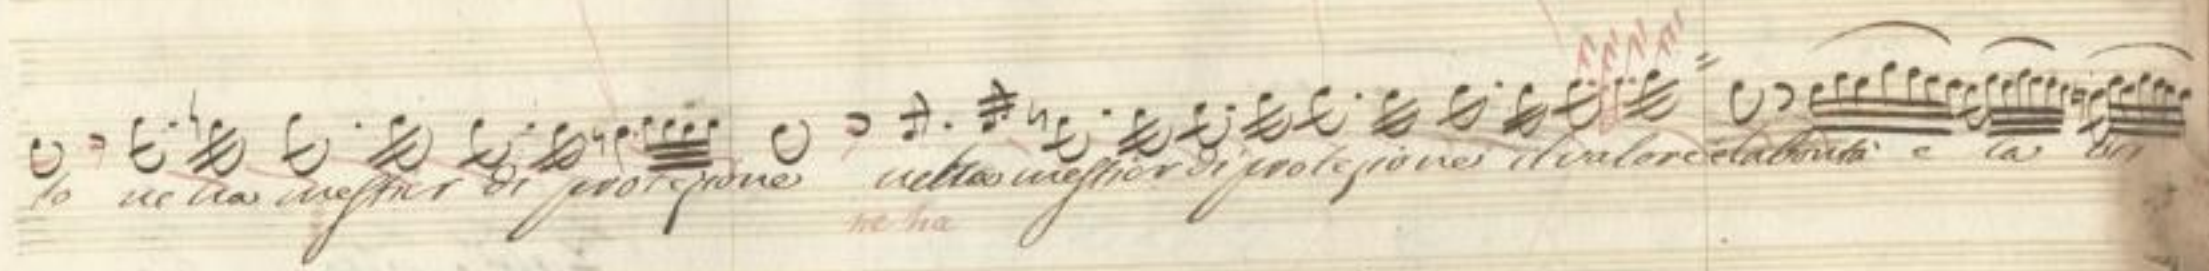 to ne ha mestier di protezione nella mestier di protezione il valore e la bontà e la bon
ne ha